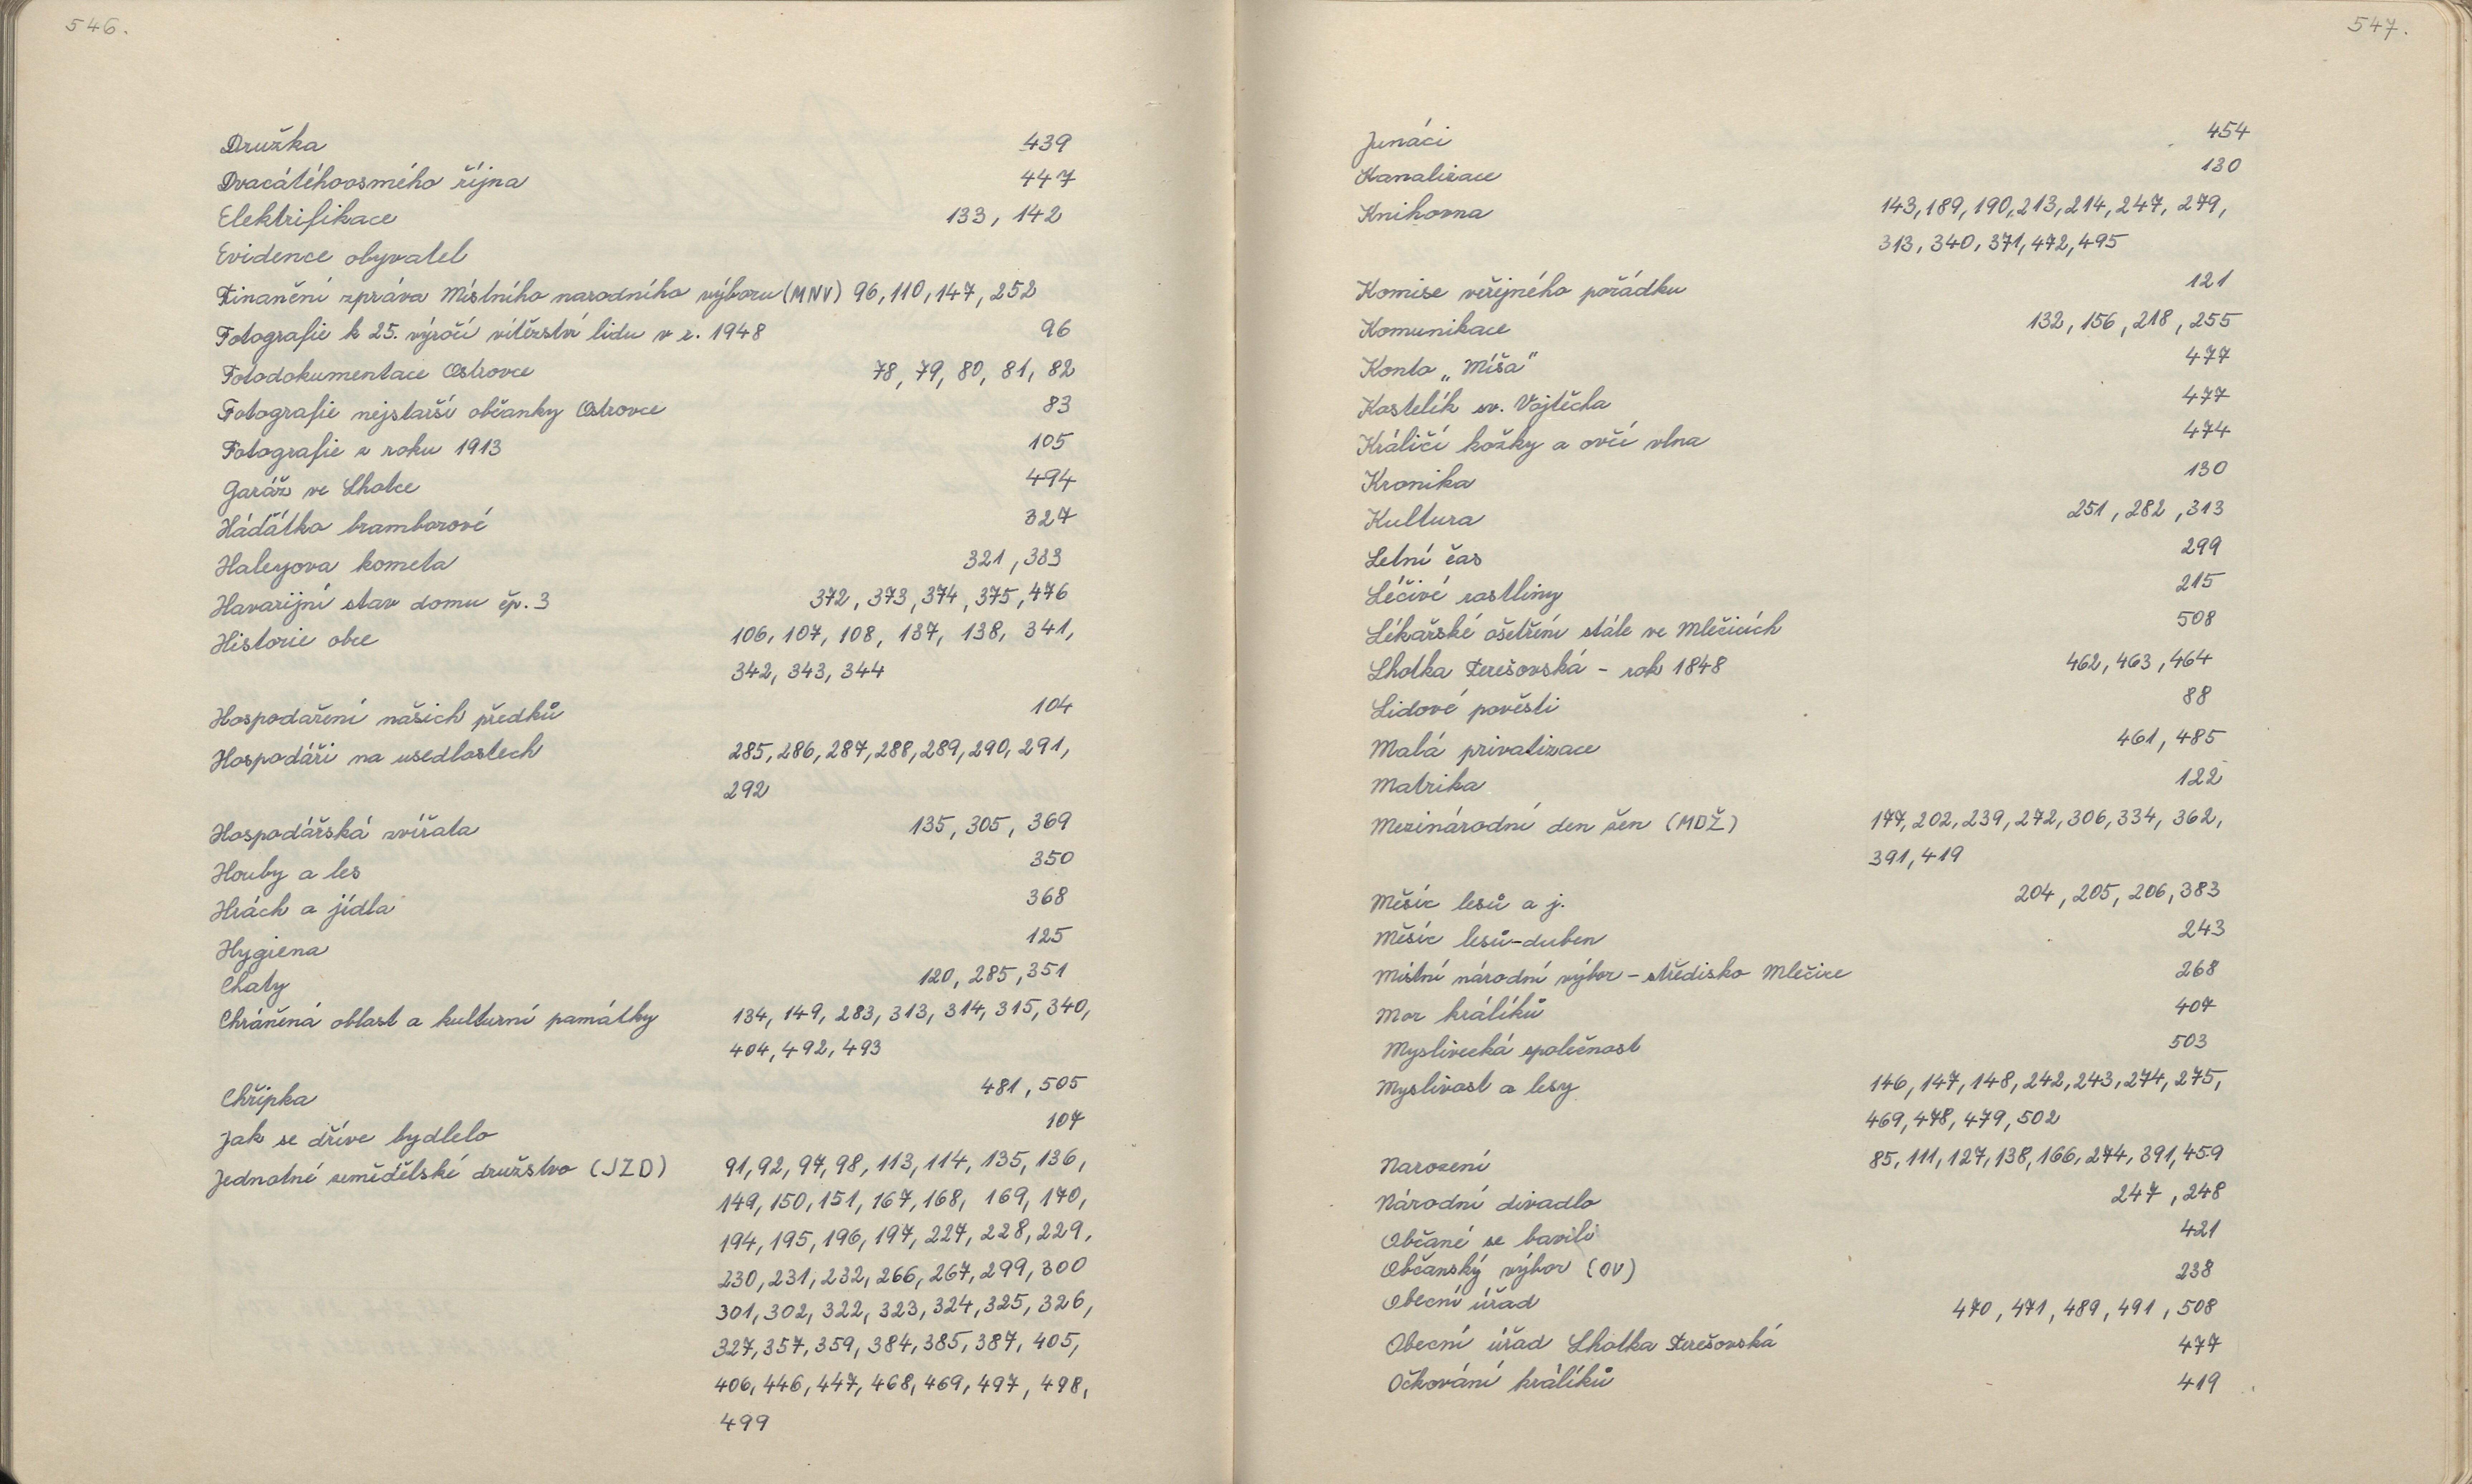 546.
Družka 439
Dvacátéhoosmého října 447
Elektrifikace 133, 142
Evidence obyvatel
Finanční zpráva Místního narodního výboru (MNV) 96, 110, 147, 252
Fotografie k 25. výročí vítězství lidu v r. 1948 96
Fotodokumentace Ostrovce 78, 79, 80, 81, 82
Fotografie nejstarší občanky Ostrovce 83
Fotografie z roku 1913 105
Garáž ve Lhotce 494
Háďátko bramborové 327
Haleyova kometa 321, 333
Havarijní stav domu čp. 3 372, 373, 374, 375, 476
Historie obce 106, 107, 108, 137, 138, 341,
342, 343, 344
Hospodaření našich předků 104
Hospodáři na usedlostech 285, 286, 287, 288, 289, 290, 291,
292
Hospodářská zvířata 135, 305, 369
Houby a les 350
Hrách a jídla 368
Hygiena 125
Chaty 120, 285, 351
Chráněná oblast a kulturní památky 134, 149, 283, 313, 314, 315, 340,
404, 492, 493
Chřipka 481, 505
Jak se dříve bydlelo 107
Jednotné zemědělské družstvo (JZD) 91, 92, 97, 98, 113, 114, 135, 136,
149, 150, 151, 167, 168, 169, 170,
194, 195, 196, 197, 227, 228, 229,
230, 231, 232, 266, 267, 299, 300
301, 302, 322, 323, 324, 325, 326,
327, 357, 359, 384, 385, 387, 405,
406, 446, 447, 468, 469, 497, 498,
499
547.
Junáci 454
Kanalizace 130
Knihovna 143, 189, 190, 213, 214, 247, 279,
313, 340, 371, 472, 495
Komise veřejného pořádku 121
Komunikace 132, 156, 218, 255
Konto „Míša" 477
Kostelík sv. Vojtěcha 477
Králičí kožky a ovčí vlna 474
Kronika 130
Kultura 251, 282, 313
Letní čas 299
Léčivé rostliny 215
Lékařské ošetření stále ve Mlečicích 508
Lhotka Terešovská - rok 1848 462, 463, 464
Lidové pověsti 88
Malá privatizace 461, 485
Matrika 122
Mezinárodní den žen (MDŽ) 177, 202, 239, 272, 306, 334, 362,
391, 419
Měsíc lesů a j. 204, 205, 206, 383
Měsíc lesů-duben 243
Místní národní výbor - středisko Mlečice 268
Mor králíků 407
Myslivecká společnost 503
Myslivost a lesy 146, 147, 148, 242, 243, 274, 275,
469, 478, 479, 502
Narození 85, 111, 127, 138, 166, 274, 391, 459
Národní divadlo 247, 248
Občané se bavili 421
Občanský výbor (OV) 238
Obecní úřad 470, 471, 489, 491, 508
Obecní úřad Lhotka Terešovská 477
Očkování králíků 419